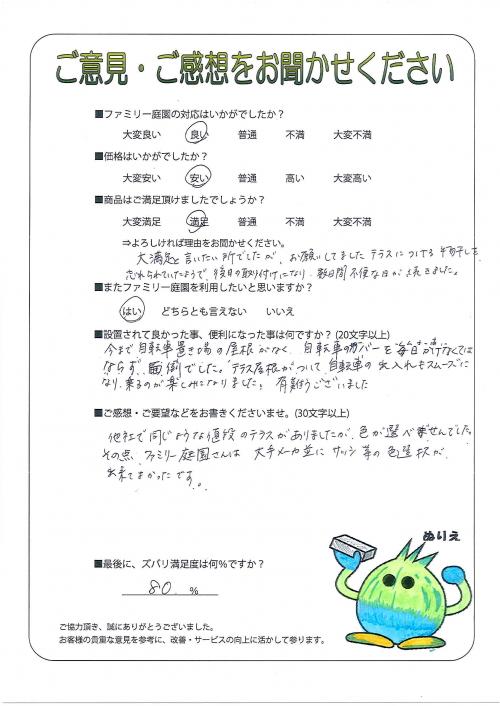 ご意見・ご感想をお聞かせください
■ファミリー庭園の対応はいかがでしたか？
大変良い 良い 普通 不満 大変不満
■価格はいかがでしたか？
大変安い 安い 普通 高い 大変高い
■商品はご満足頂けましたでしょうか？
大変満足 満足 普通 不満 大変不満
⇒よろしければ理由をお聞かせください。
大満足と言いたい所でしたが、お願いしてました テラスにつける 物干しを
忘れられていたようで、後日の取り付けになり、数日間不便な日が続きました。
■またファミリー庭園を利用したいと思いますか？
はい どちらとも言えない いいえ
■設置されて良かった事、便利になった事は何ですか？(20文字以上)
今まで、自転車置き場の屋根がなく、自転車のカバーを毎日かけなくては
ならず、面倒でした。テラス屋根がついて、自転車の出入れもスムーズに
なり、乗るのが楽しみになりました！ 有難うございました
■ご感想・ご要望などをお書きくださいませ。(30文字以上)
他社で同じような値段のテラスがありましたが、色が選べませんでした。
その点、ファミリー庭園さんは 大手メーカ並に サッシ等の色選択が
出来てよかったです。
ぬりえ
■最後に、ズバリ満足度は何％ですか？
80 ％
ご協力頂き、誠にありがとうございました。
お客様の貴重な意見を参考に、改善・サービスの向上に活かして参ります。